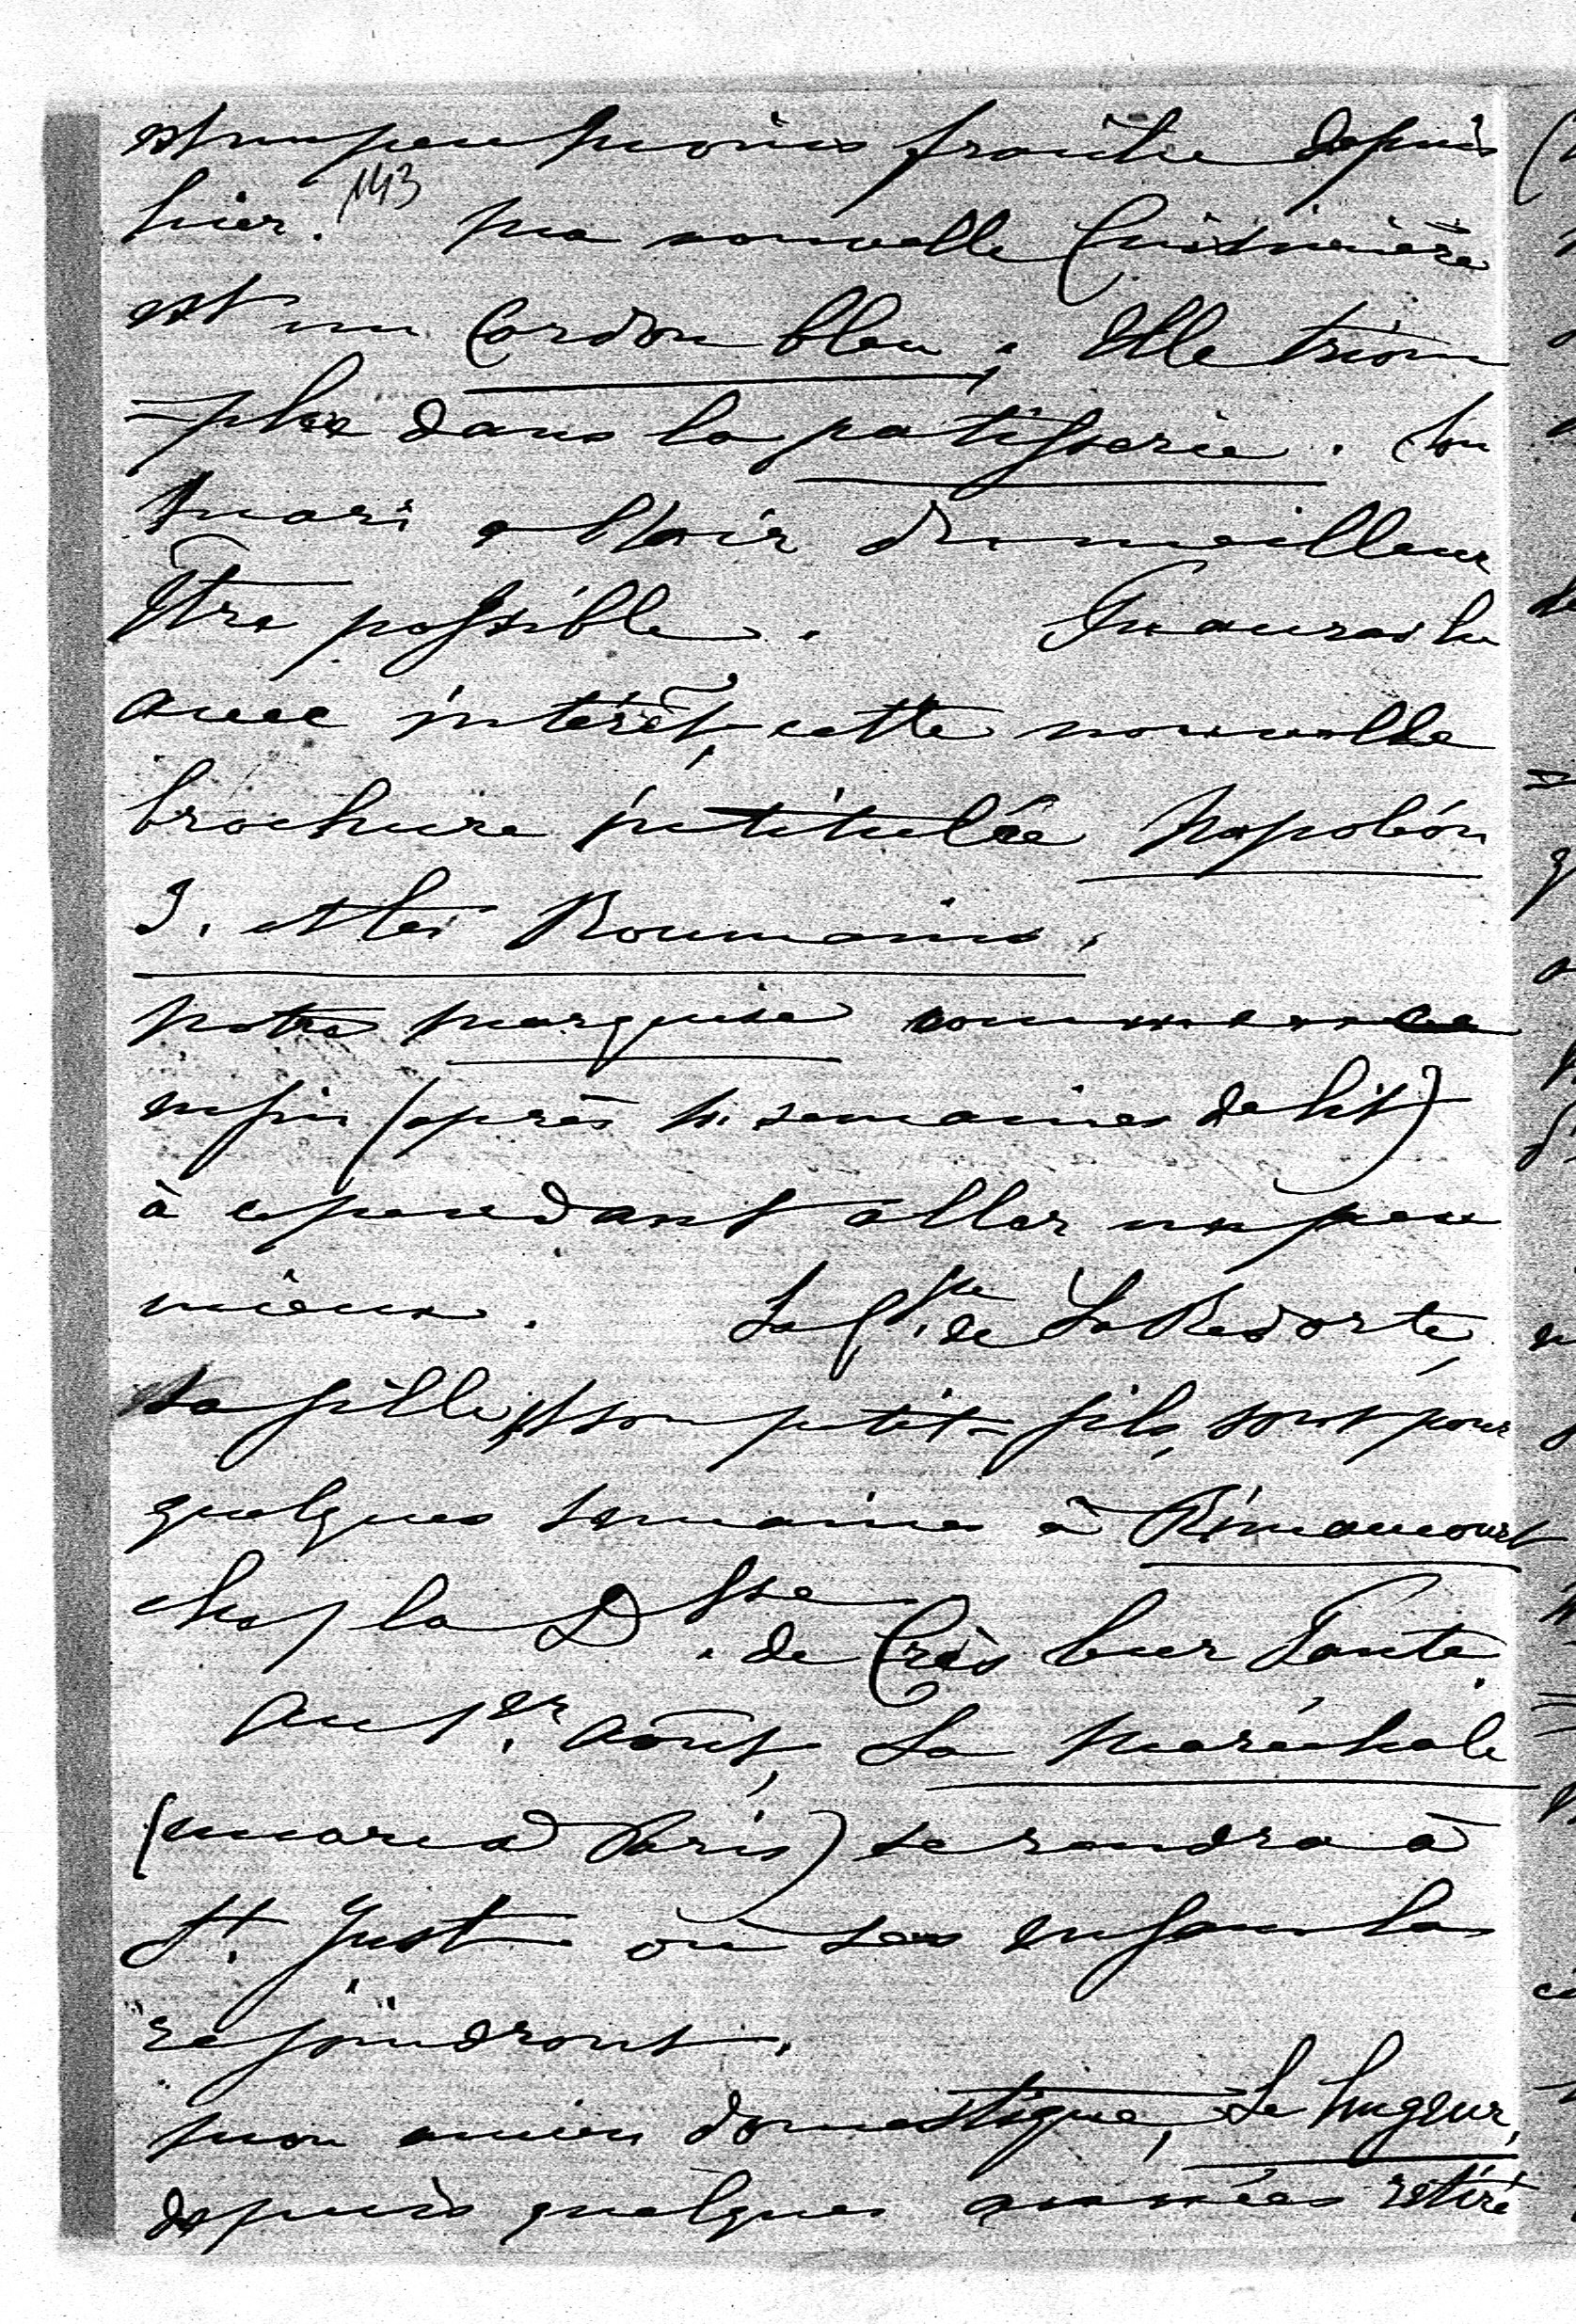 est un peu moins fraîche depuis
hier. 143 Ma nouvelle Cuisinière
est un Cordon bleu; Elle triom
=phe dans la patisserie. Son
Mari a l'air du meilleur
Être possible. J'ai lu
avec intérêt, cette nouvelle
brochure intitulée Napoléon
I. et les Roumains.
Notre Marquise commence
enfin (après semaines de lit)
à cependant aller un peu
mieux. La Ctsse. de La Redorte,
sa fille, et son petit-fils, sont pour
quelques semaines à Rimaucourt
chez la Dsse. de Crès leur Tante.
Au 1er. Août, La Maréchale
( Paris) se rendra à
St. Just où ses enfans la
"rejoindront".
Mon ancien domestique, Le hugeur,
depuis quelques années retiré